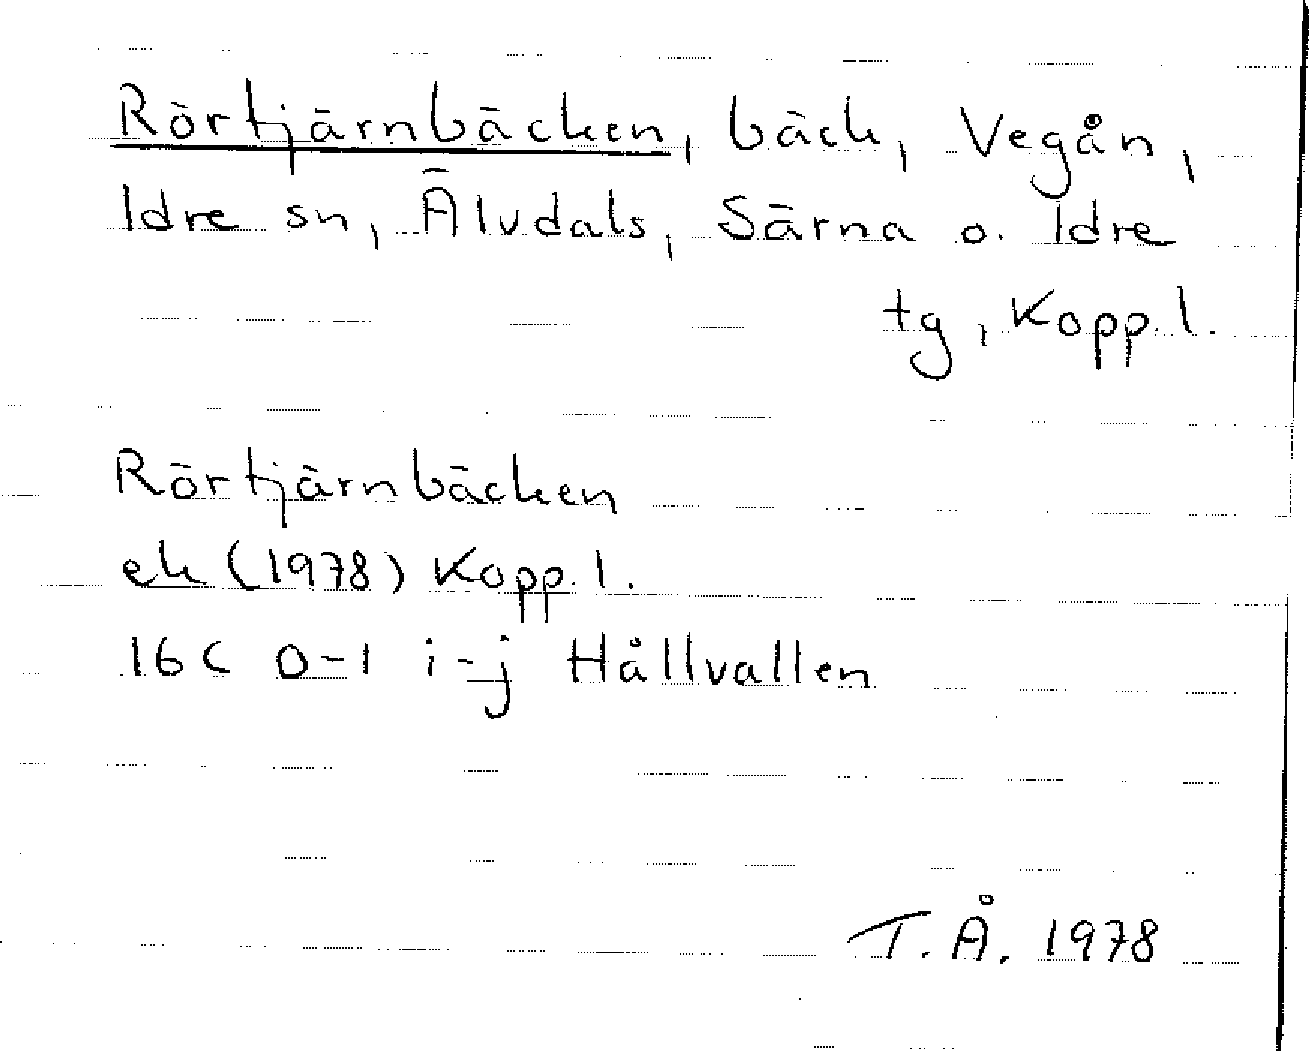 Rörtjärnbäcken, bäck, Vegån,
Idre sn, Älvdals, Särna o. Idre
tg, Kopp. l.
Rörtjärnbäcken
ek (1978) Kopp. l.
16 C 0-1 i-j Hållvallen
T. Å. 1978